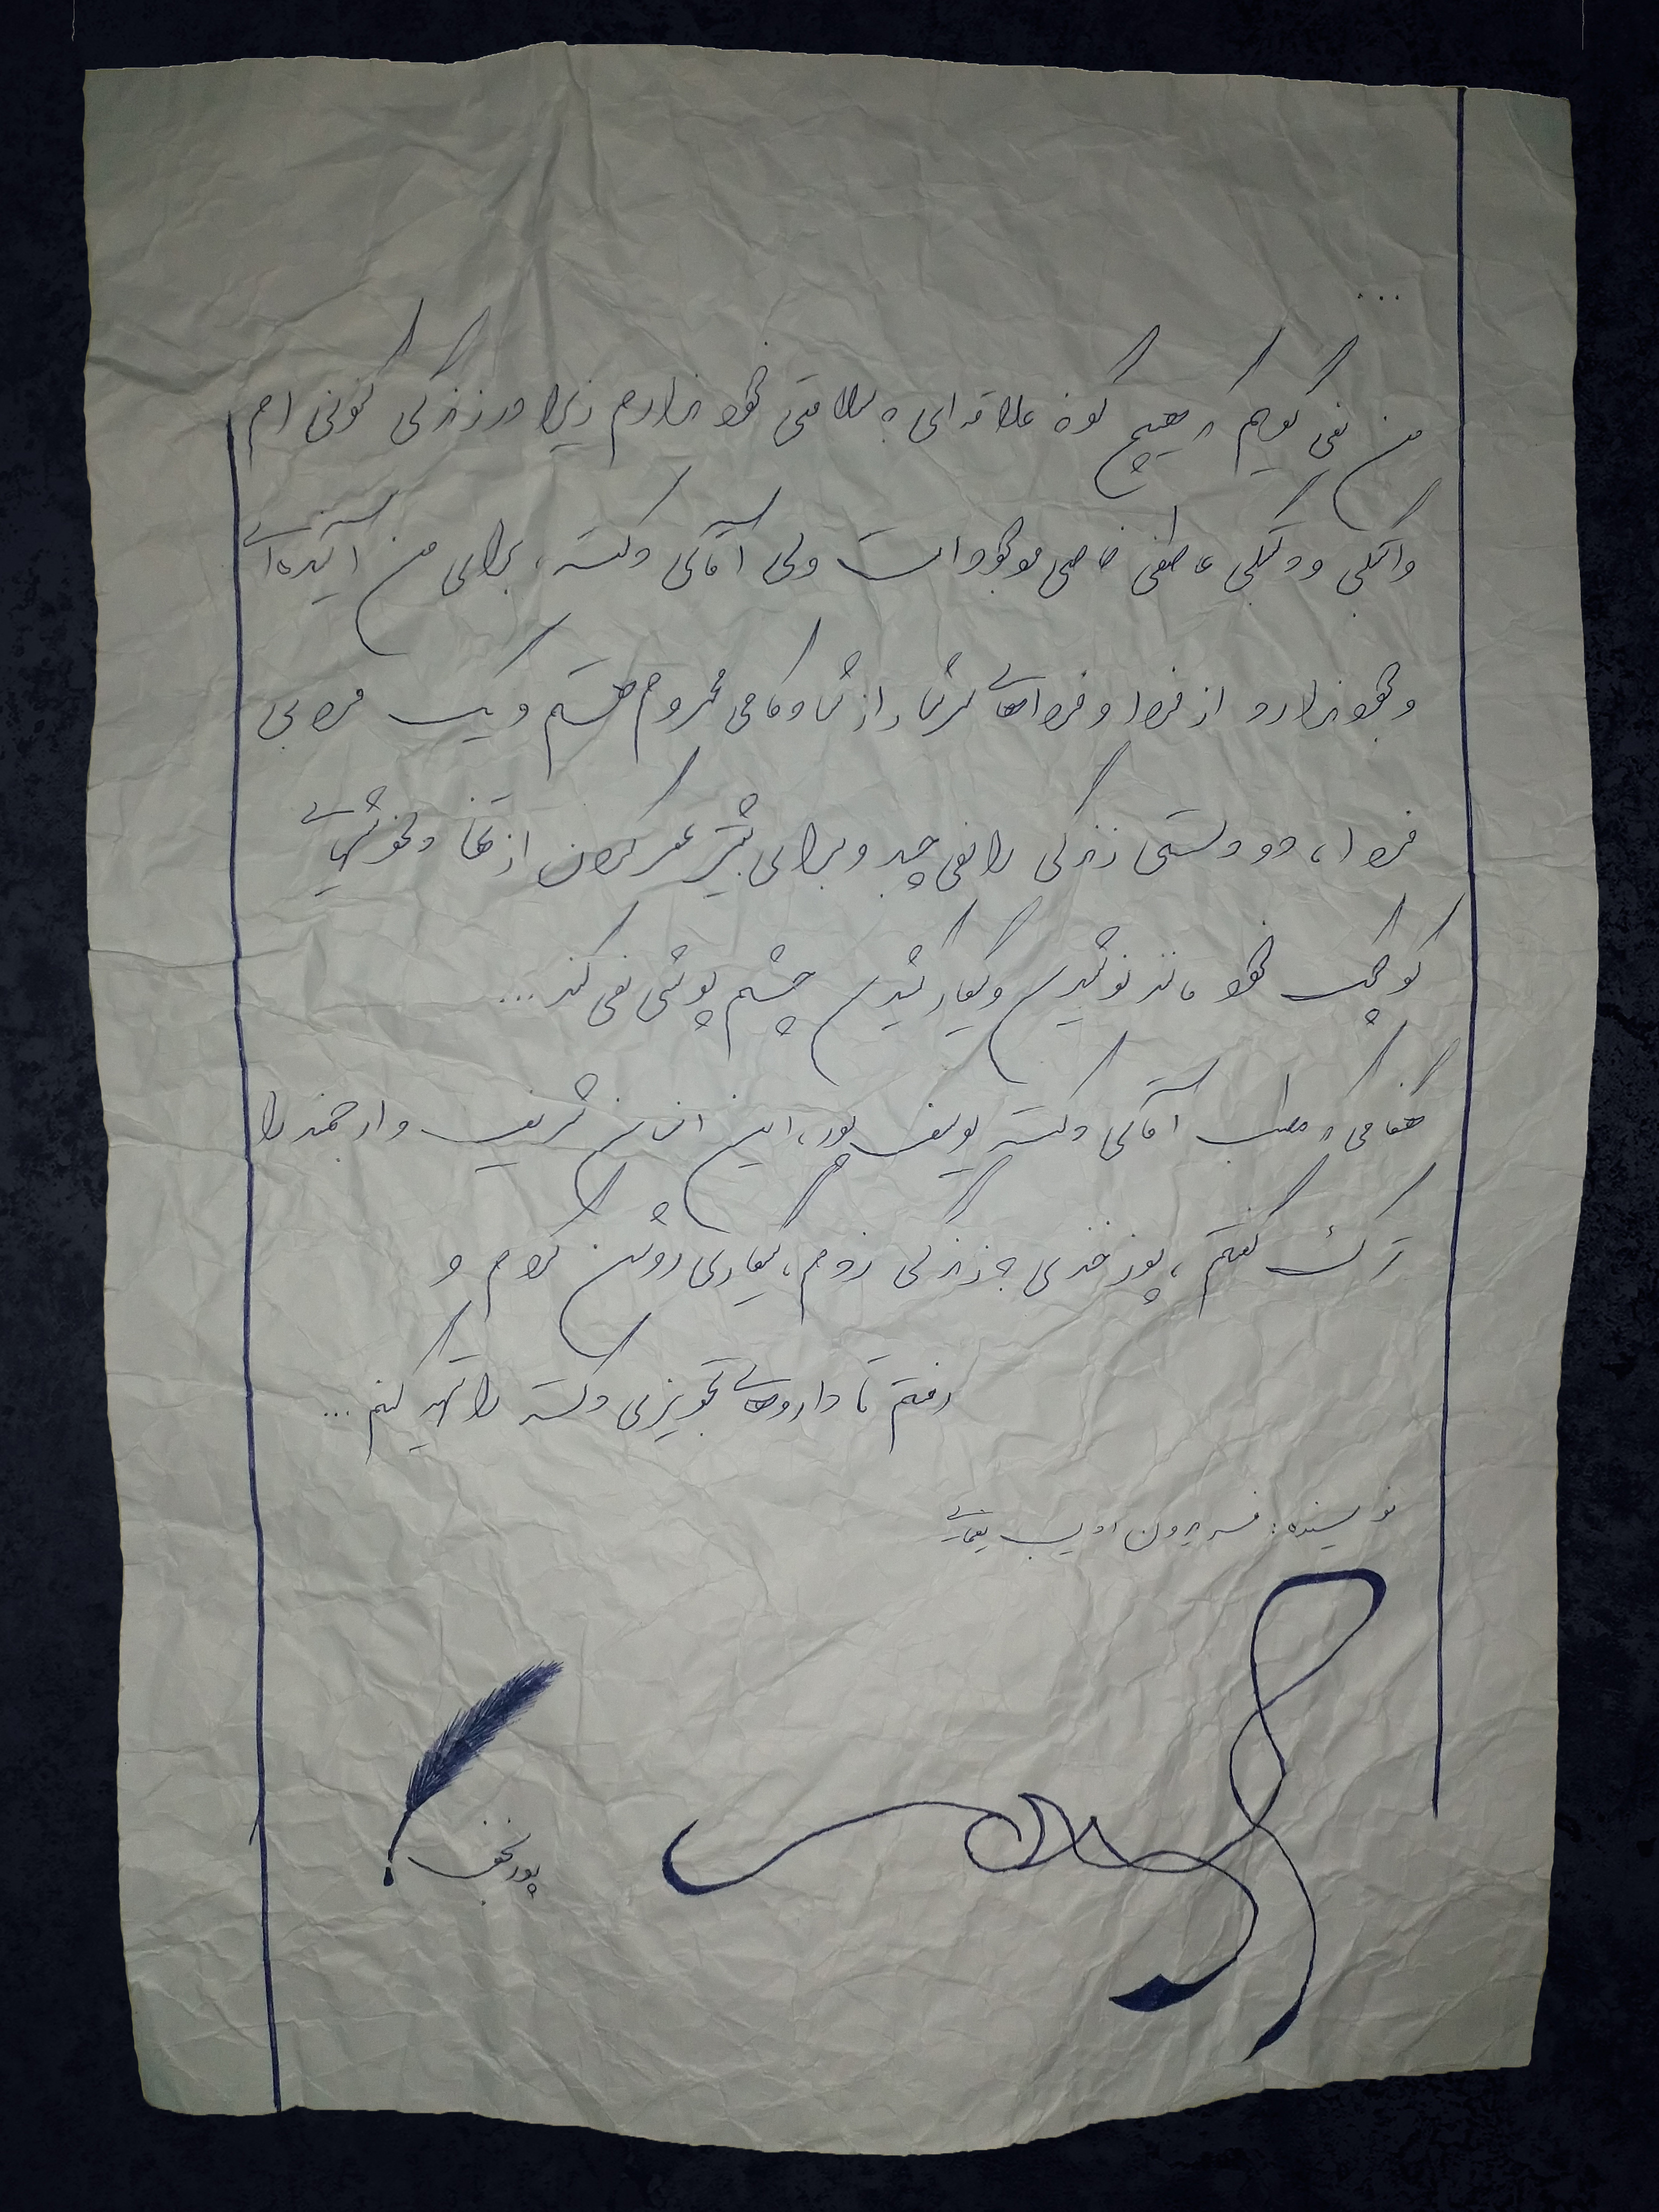 ...
من نمی گویم که هیچ گونه علاقه ای به سلامتی خود ندارم زیرا در زندگی کنونی ام
وابستگی و دلبستگی عاطفی خاصی موجود است ولی آقای دکتر، برای من آینده‌ای
وجود ندارد از فردا و فرداهای سرشار از شادکامی محروم هستم و یک فرد بی
فردا، دو دستی زندگی را نمی چسبد و برای بیشتر عمر کردن از تمام دلخوشی‌های
کوچک خود مانند نوشیدن و سیگار کشیدن چشم پوشی نمی کند...
هنگامی که مطب آقای دکتر یوسف پور، این انسان شریف و ارجمند را
ترک گفتم، پوزخندی به زندگی زدم، سیگاری روشن کردم و
رفتم تا داروهای تجویزی دکتر را تهیه کنم...
نویسنده: فریدون ادیب یغمایی
پورنجف